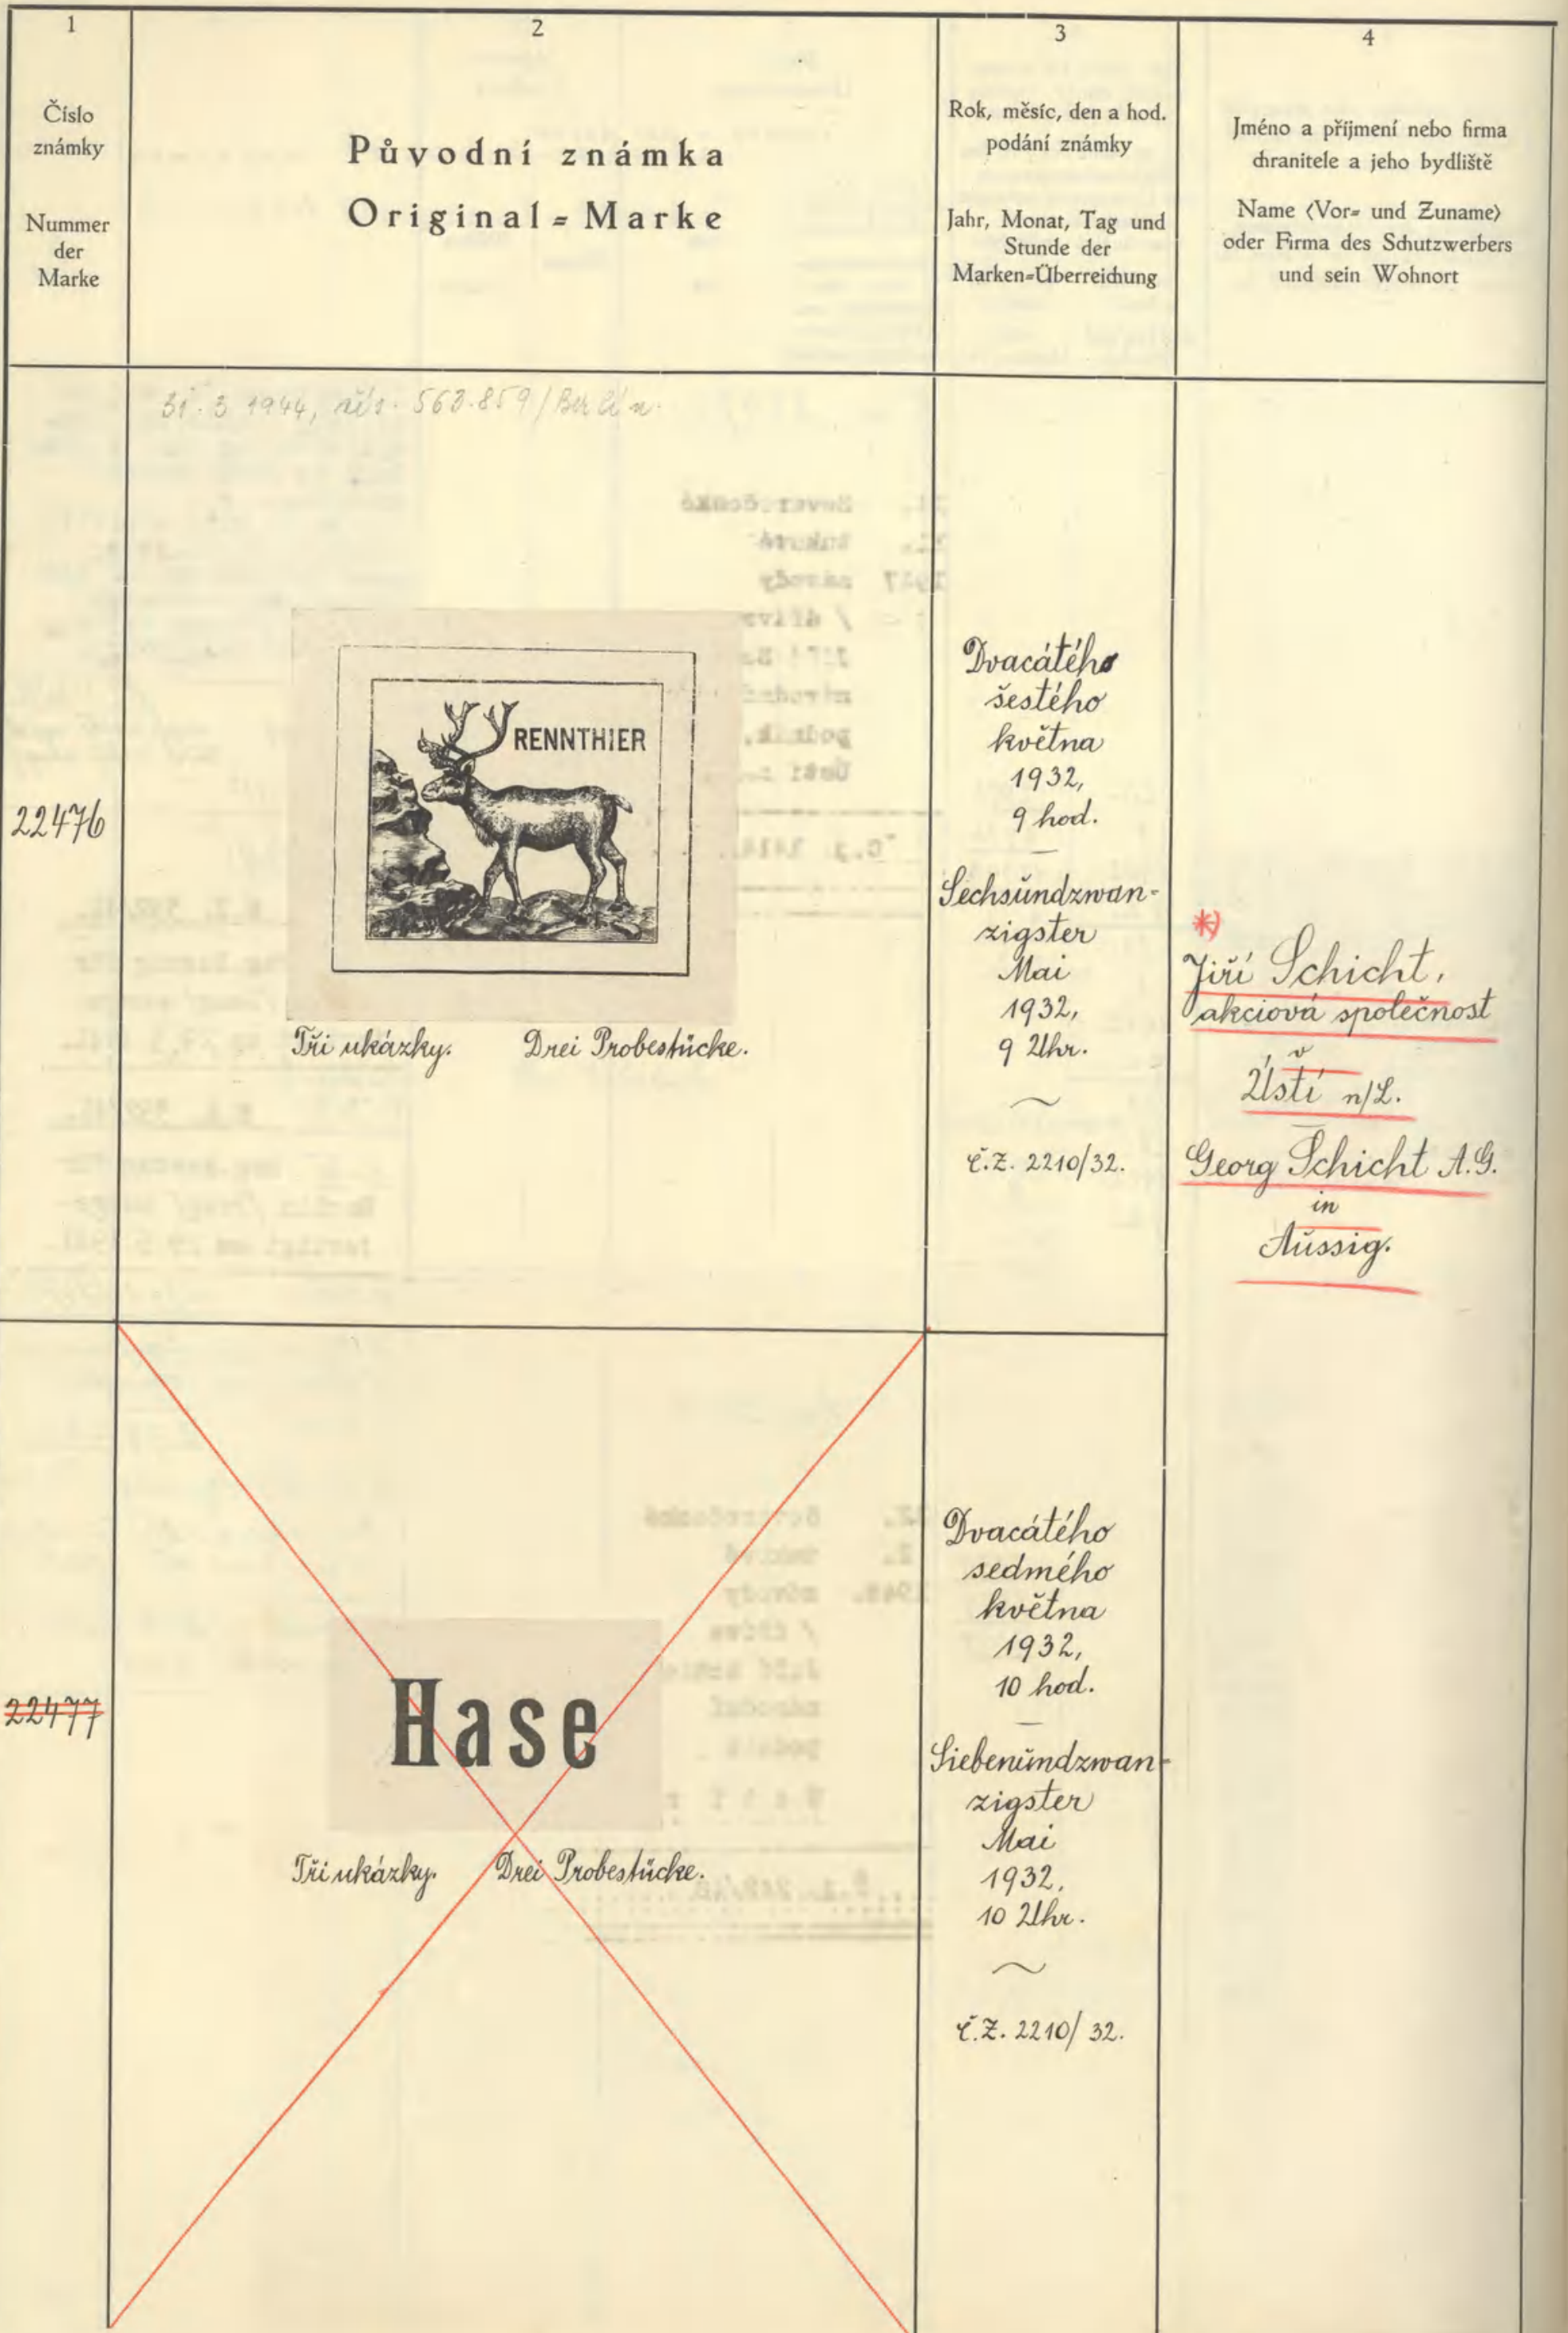 1
Číslo
známky
Nummer
der
Marke
2
Původní známka
Original=Marke
3
Rok, měsíc, den a hod.
podání známky
Jahr, Monat, Tag und
Stunde der
Marken=Überreichung
4
Jméno a příjmení nebo firma
chranitele a jeho bydliště
Name (Vor= und Zuname)
oder Firma des Schutzwerbers
und sein Wohnort
31. 3 1944, 563.859/Berlin.
22476
RENNTHIER
Tři ukázky. Drei Probestücke.
Dvacátého
šestého
května
1932,
9 hod.
Sechsundzwan-
zigster
Mai
1932,
9 Uhr.
č.Z. 2210/32.
*)
Jiří Schicht,
akciová společnost
v
Ústí n/L.
Georg Schicht A.G.
in
Aussig.
22477
Hase
Tři ukázky. Drei Probestücke.
Dvacátého
sedmého
května
1932,
10 hod.
Siebenundzwan-
zigster
Mai
1932.
10 Uhr.
č.Z. 2210/32.